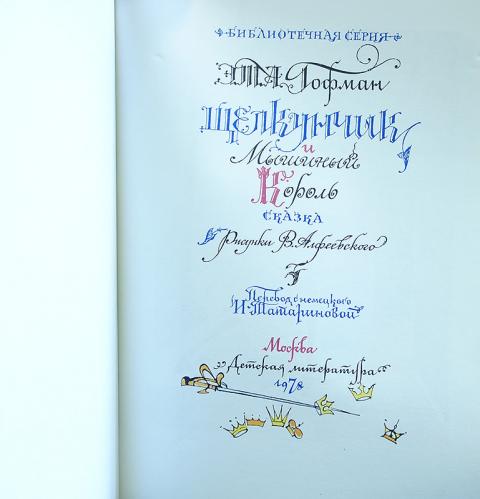 БИБЛИОТЕЧНАЯ СЕРИЯ
Э.Т.А. Гофман
ЩЕЛКУНЧИК
и
Мышиный
Король
СКАЗКА
Рисунки В. Алфеевского
Перевод с немецкого
И. Татариновой
Москва
Детская литература
1978